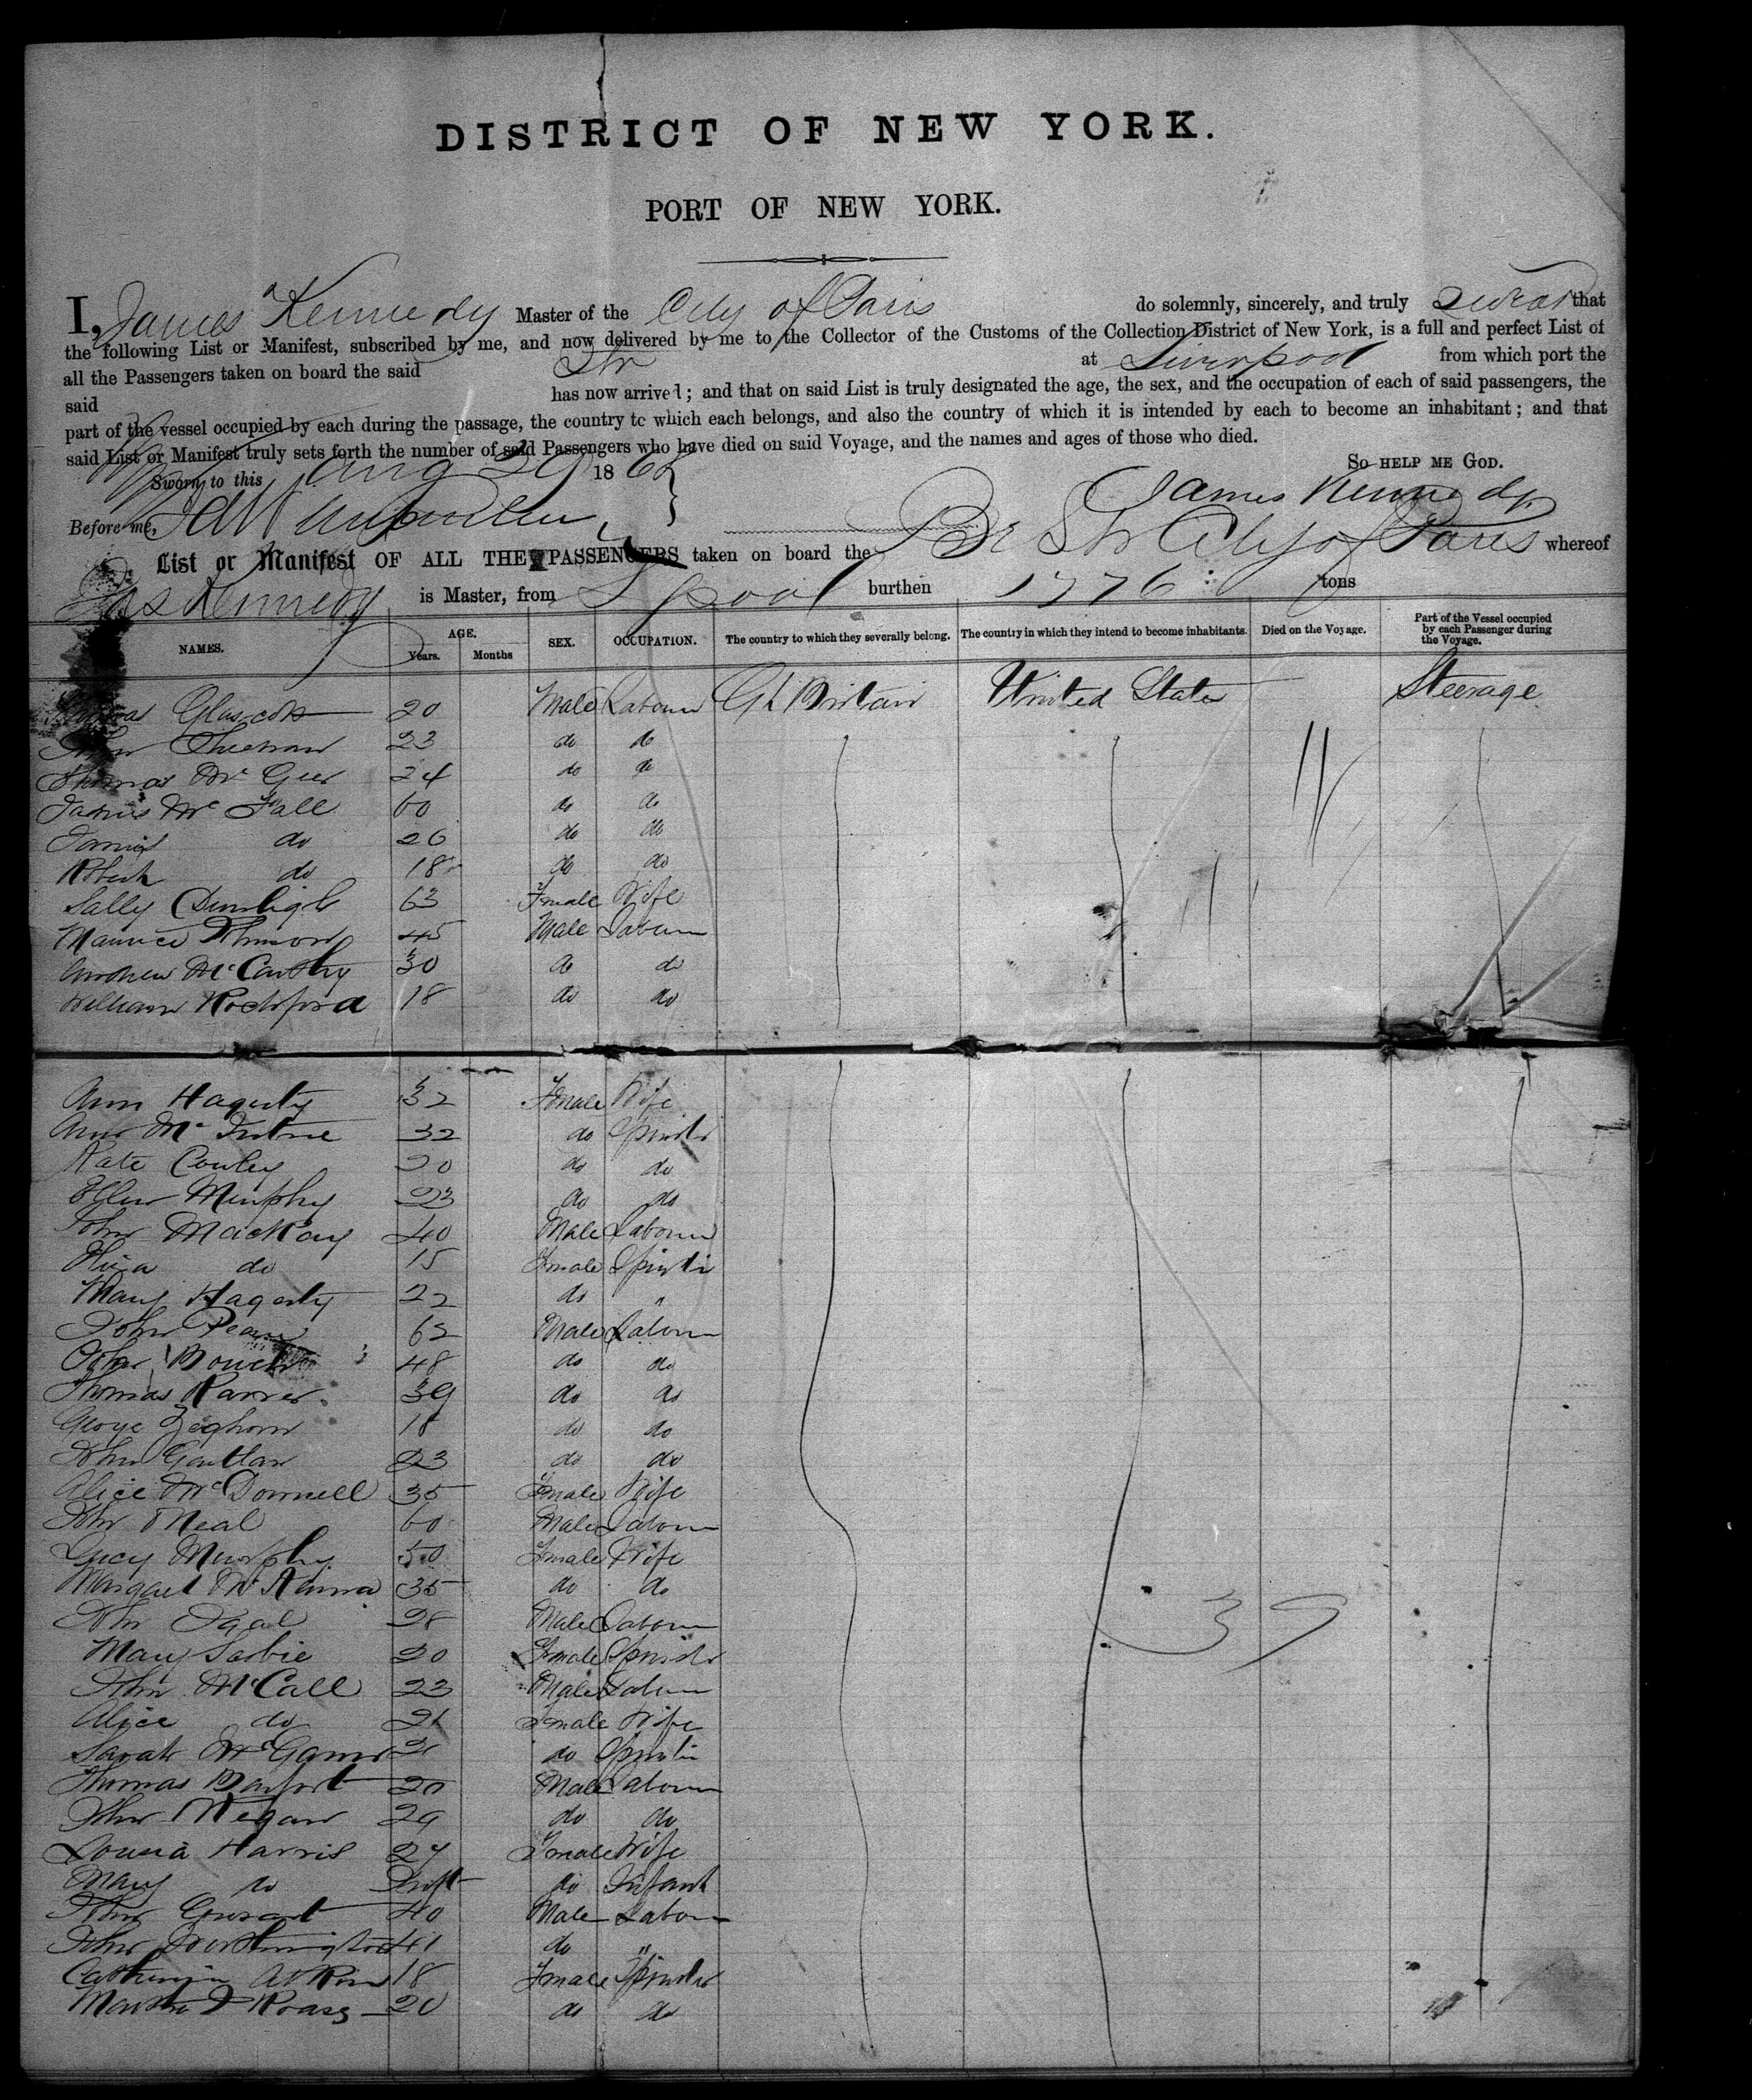 DISTRICT OF NEW YORK.
PORT OF NEW YORK.
I, James Kennedy Master of the City of Paris do solemnly, sincerely, and truly swear that
the following List or Manifest, subscribed by me, and now delivered by me to the Collector of the Customs of the Collection District of New York, is a full and perfect List of
all the Passengers taken on board the said Str at Liverpool from which port the
said has now arrived; and that on said List is truly designated the age, the sex, and the occupation of each of said passengers, the
part of the vessel occupied by each during the passage, the country to which each belongs, and also the country of which it is intended by each to become an inhabitant; and that
said List or Manifest truly sets forth the number of said Passengers who have died on said Voyage, and the names and ages of those who died.
So help me God.
Sworn to this Aug 29 18
James Kennedy
Before me,
List or Manifest OF ALL THE PASSENGERS taken on board the Br Str City of Paris whereof
Jas Kennedy is Master, from L'pool burthen 1776 tons
NAMES. AGE. Years. Months SEX. OCCUPATION. The country to which they severally belong. The country in which they intend to become inhabitants. Died on the Voyage. Part of the Vessel occupied by each Passenger during the Voyage.
Glascott 20 Male Labourer Gt Britain United States Steerage
John Sheehan 23 do do
Thomas Mc Geer 24 do do
James Mc Fall 60 do do
do 26 do do
Robert do 18 do do
Sally 63 Female Wife
Maurice 45 Male Labourer
Andrew McCarthy 30 do do
William Rochford 18 do do
Ann Hagerty 32 Female Wife
Ann Mc 32 do Spinster
Kate Conley 20 do do
Ellen Murphy 23 do do
John MacKay 40 Male Labourer
Eliza do 15 Female Spinster
Mary Hagerty 22 do "
John 62 Male Labourer
John 48 do do
Thomas 39 do do
George 18 do do
John 23 do do
Alice McDonnell 35 Female Wife
John Neal 60 Male Labourer
Lucy Murphy 50 Female Wife
Margaret Mc Kenna 35 do do
John 28 Male Labourer
Mary 20 Female Spinster
John McCall 23 Male Labourer
Alice do 21 Female Wife
Sarah 21 do Spinster
Thomas 20 Male Labourer
John Regan 29 do do
Louisa Harris 27 Female Wife
Mary do Inft do Infant
John 40 Male Labour
John Worthington 41 do "
Catherine Atkins 18 Female Spinster
20 do do
39